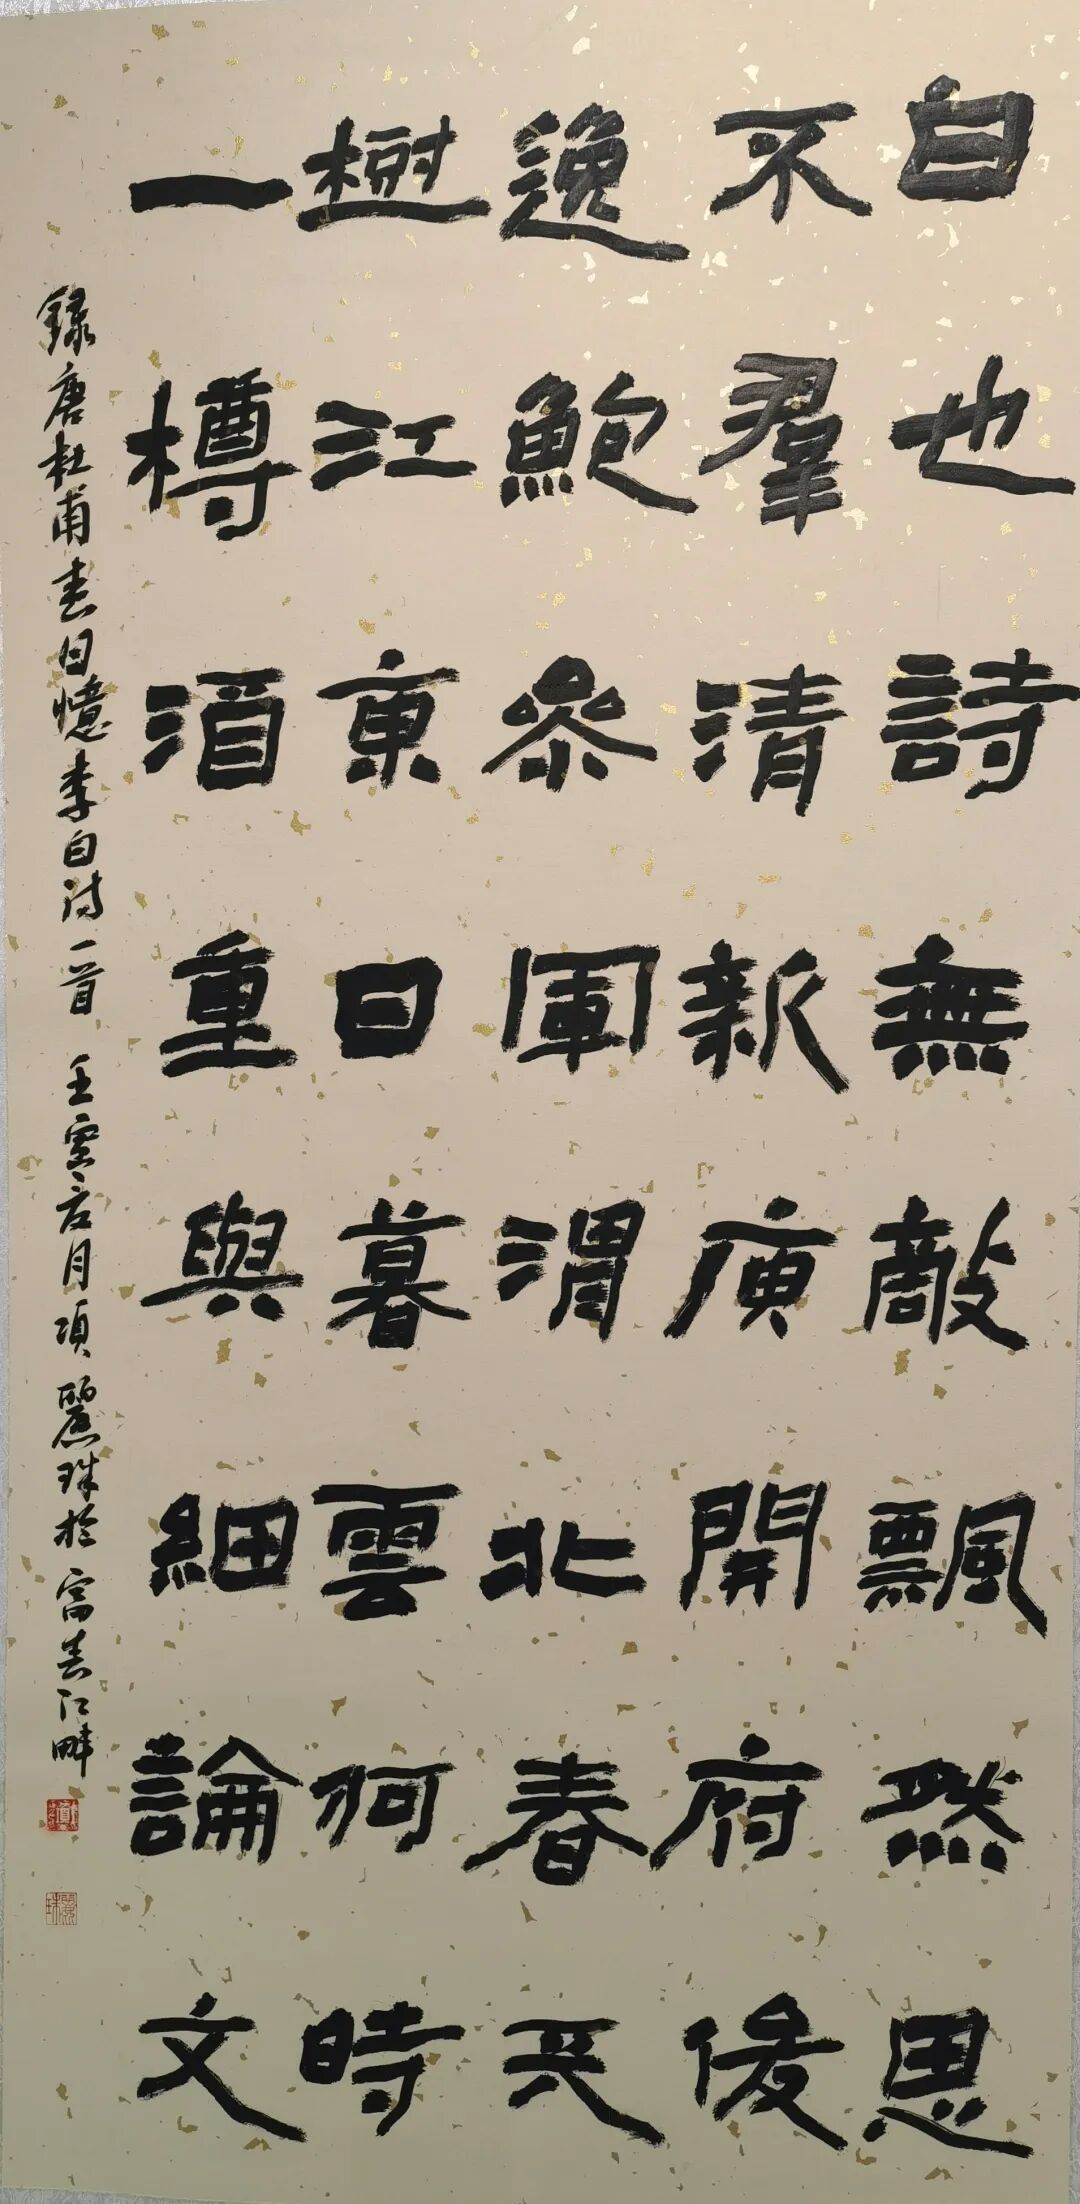 白也詩無敵飄然思
不羣清新庾開府俊
逸鮑參軍渭北春天
樹江東日暮雲何時
一樽酒重與細論文
録唐杜甫春日憶李白詩一首 壬寅月項麗珠於富春江畔
麗珠